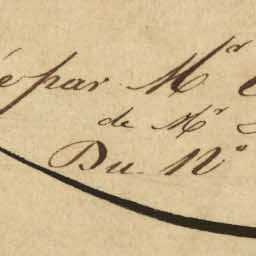 é par Mr
de Mr
Du No